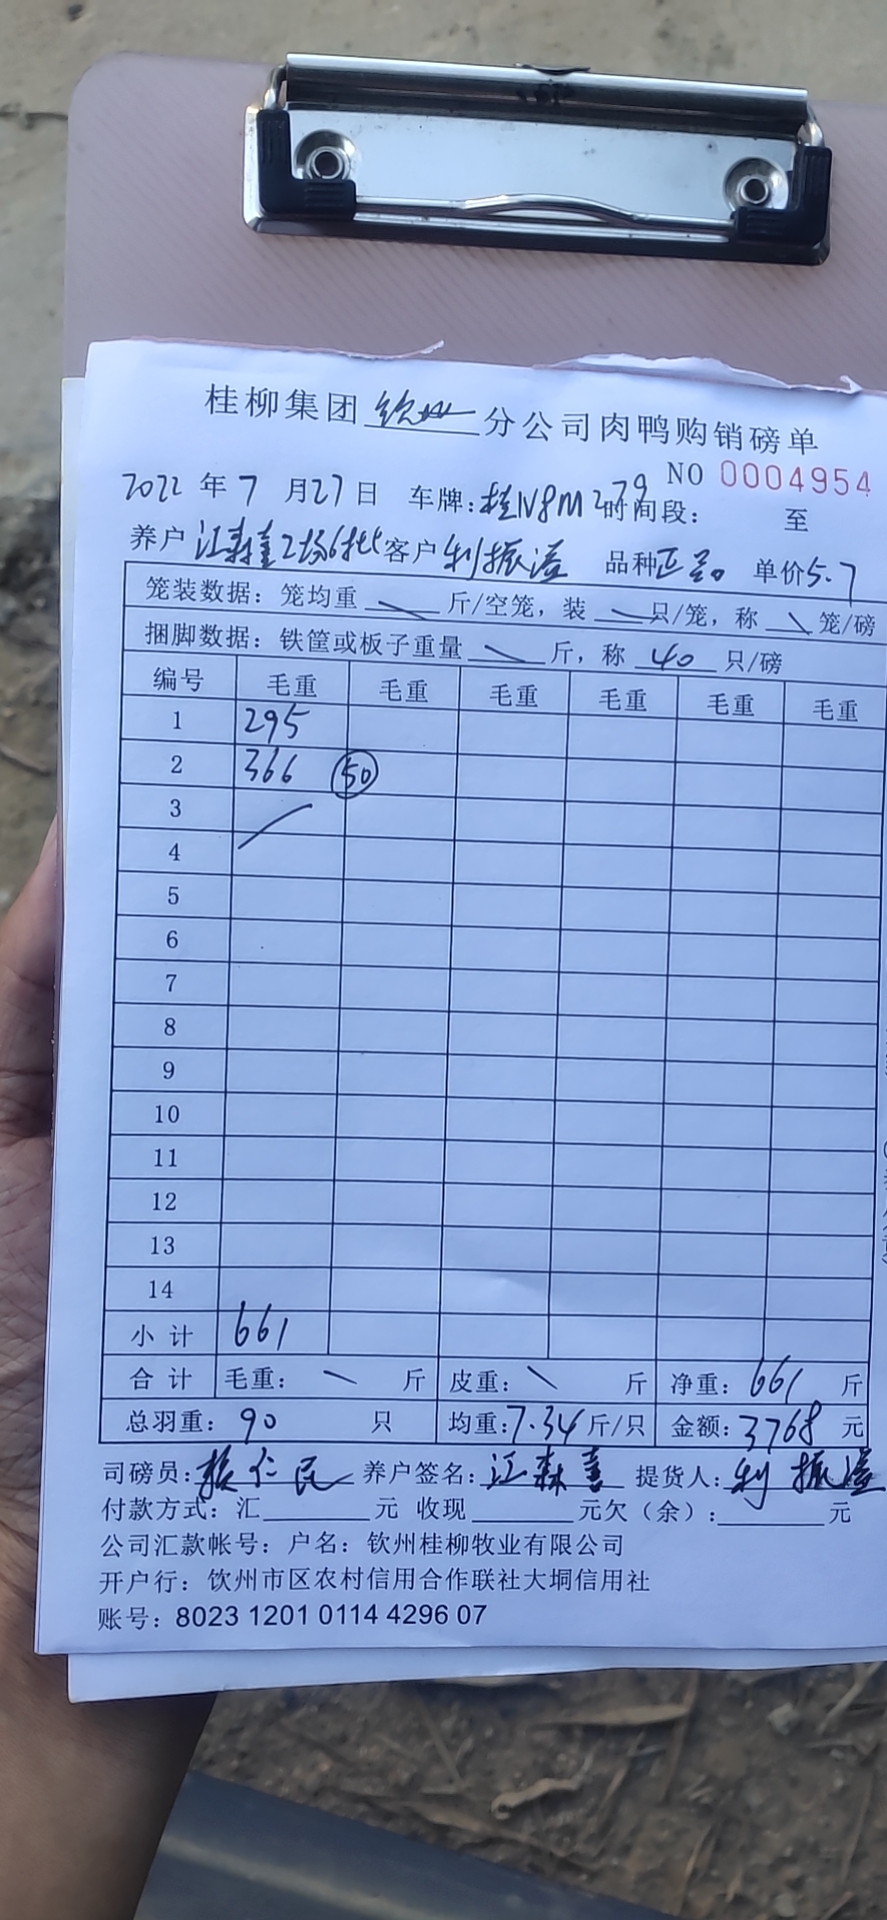 桂柳集团 钦州 分公司肉鸭购销磅单
NO 0004954
2022 年 7 月 27 日 车牌：桂N8M279 时间段： 至
养户 江森喜2场6批 客户 利振溢 品种 正品 单价5.7
笼装数据：笼均重 \ 斤/空笼，装 \ 只/笼，称 \ 笼/磅
捆脚数据：铁筐或板子重量 \ 斤，称 40 只/磅
编号 毛重 毛重 毛重 毛重 毛重 毛重
1 295
2 366 50
3
4
5
6
7
8
9
10
11
12
13
14
小计 661
合计 毛重： \ 斤 皮重： \ 斤 净重：661 斤
总羽重：90 只 均重：7.34 斤/只 金额：3768 元
司磅员： 仁民 养户签名：江森喜 提货人：利振溢
付款方式：汇 元 收现 元欠（余）： 元
公司汇款帐号：户名：钦州桂柳牧业有限公司
开户行：钦州市区农村信用合作联社大垌信用社
账号：8023 1201 0114 4296 07